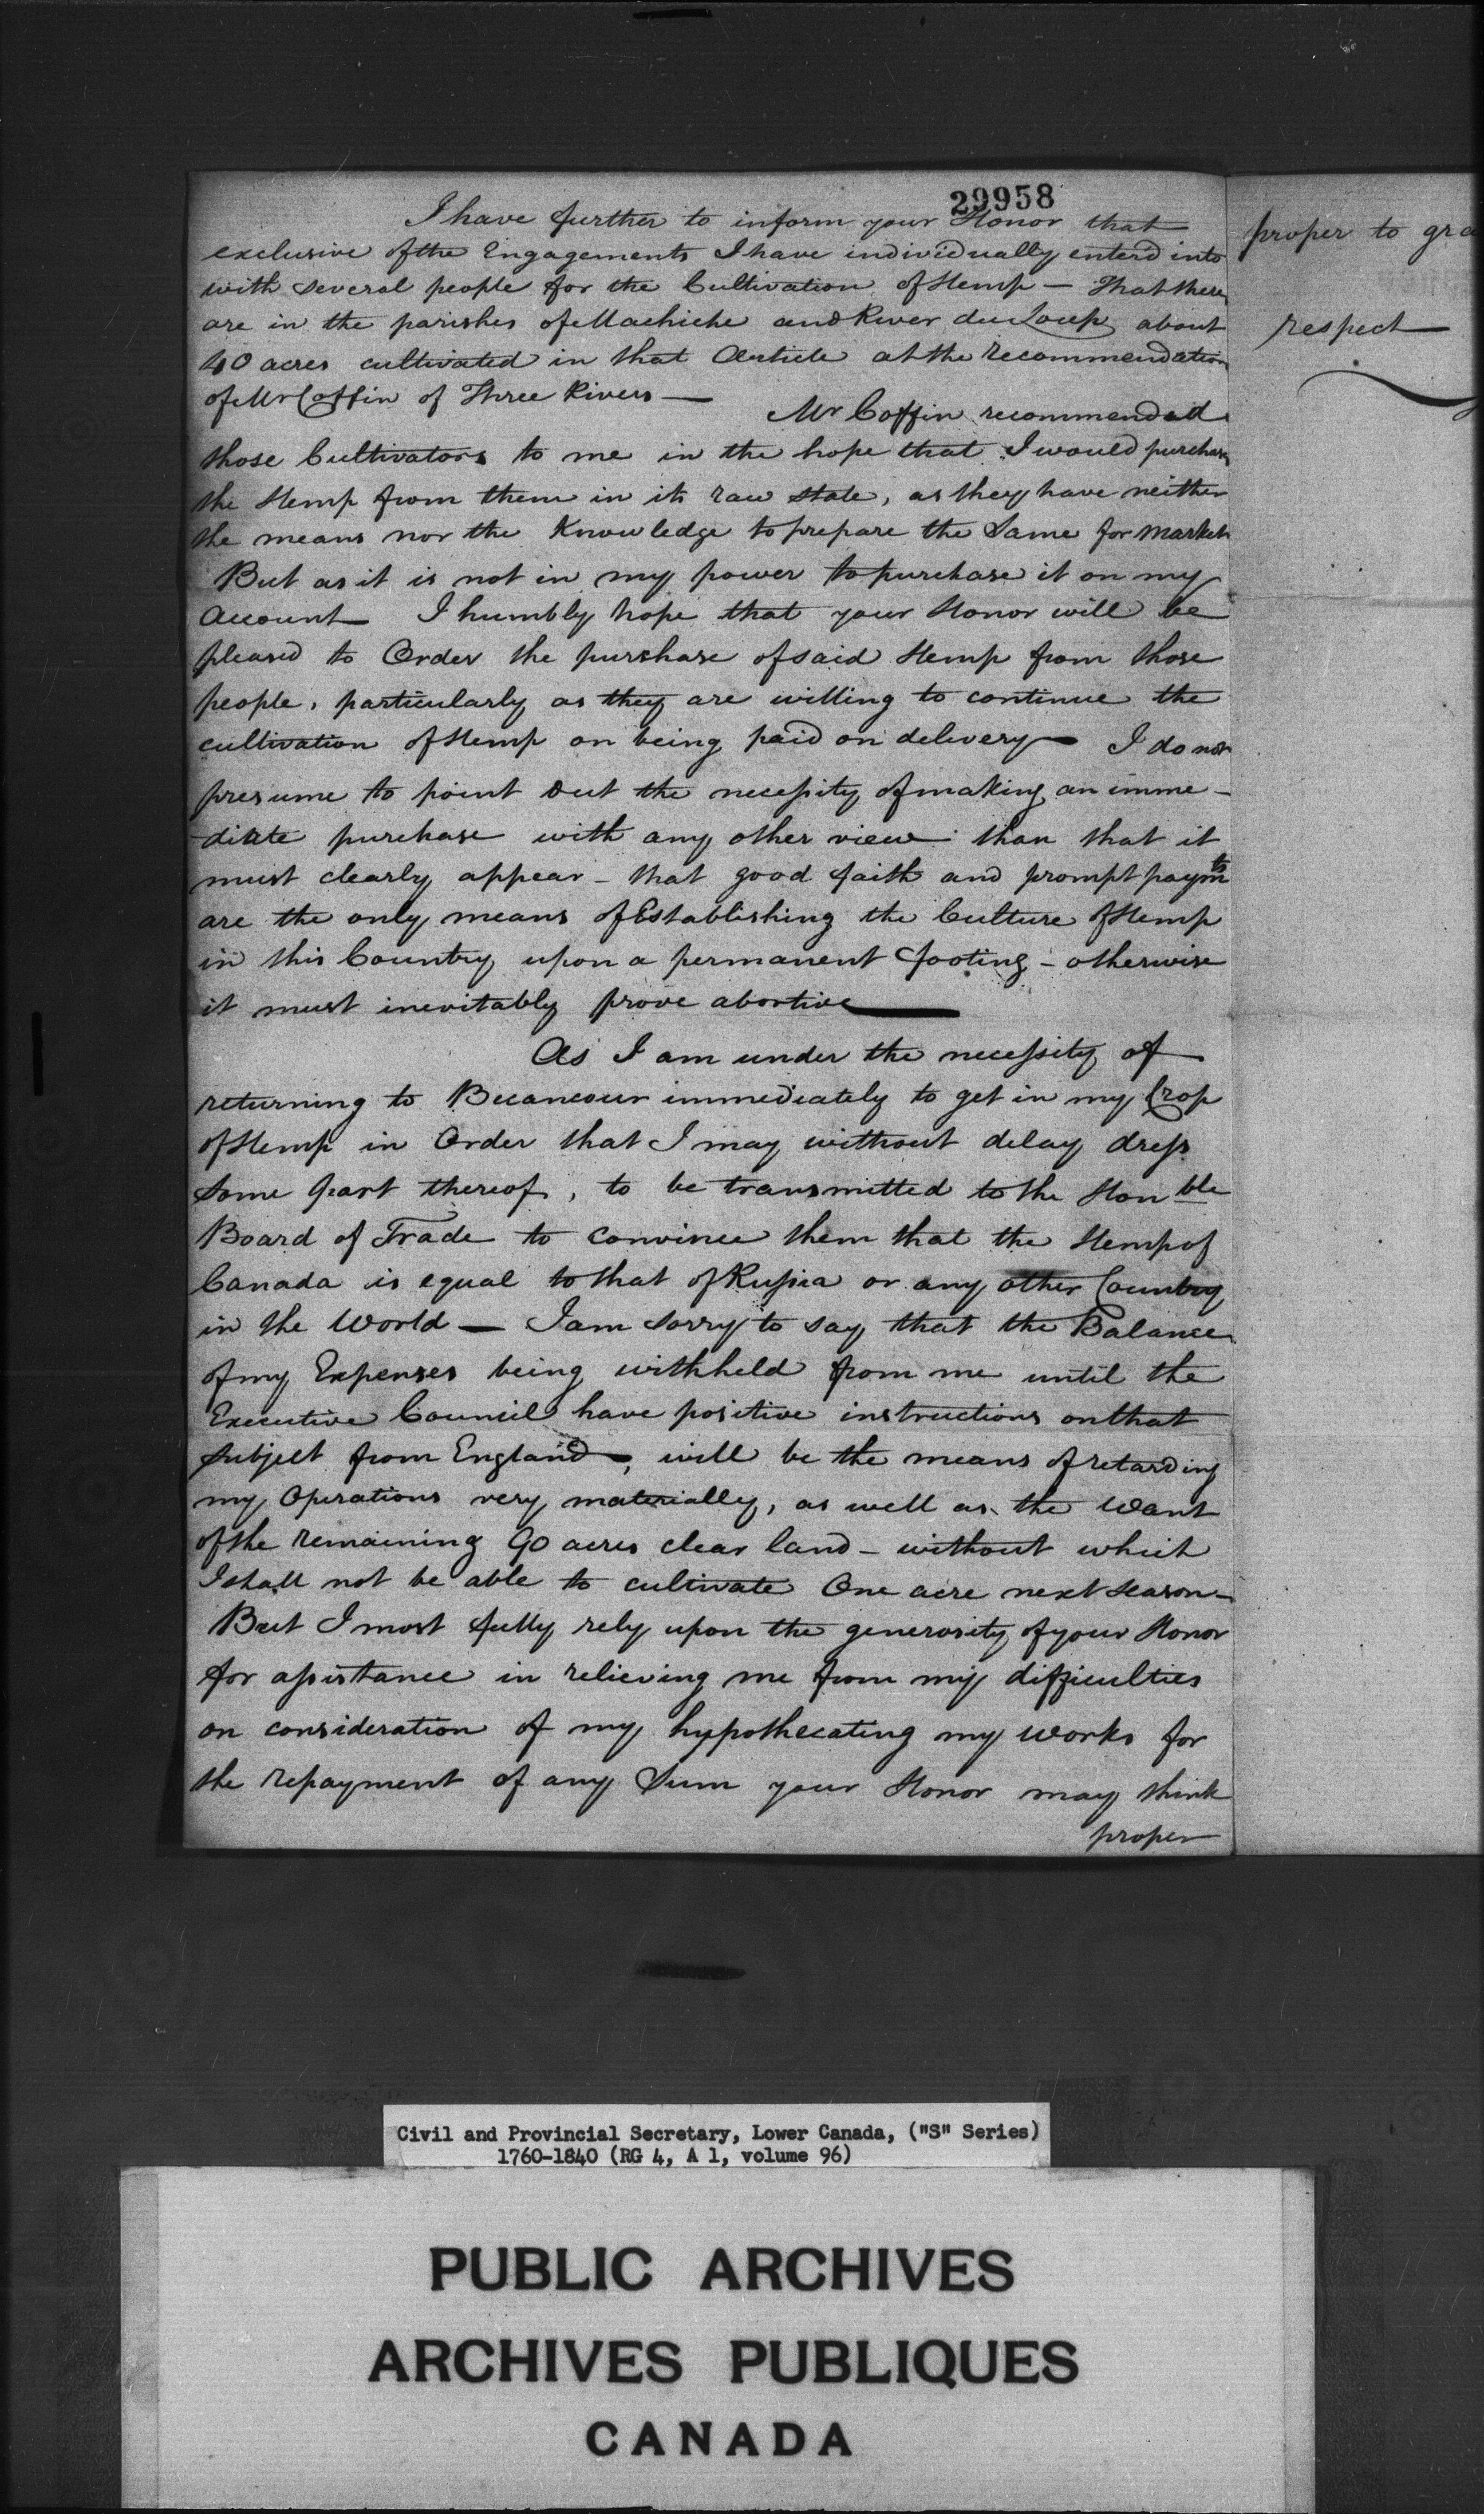 29958
I have further to inform your Honor that
exclusive of the Engagements I have individually enterd into
with several people for the Cultivation of Hemp — That there
are in the parishes of Machiche and River du Loup about
40 acres cultivated in that Article at the recommendation
of Mr Coffin of Three Rivers —
Mr Coffin recommended
those Cultivators to me in the hope that I would purchase
the Hemp from them in its raw state, as they have neither
the means nor the Knowledge to prepare the Same for Market
But as it is not in my power to purchase it on my
Account I humbly hope that your Honor will be
pleased to Order the purchase of said Hemp from those
people, particularly as they are willing to continue the
cultivation of Hemp on being paid on delivery — I do not
presume to point out the necessity of making an imme-
diate purchase with any other view than that it
must clearly appear - that good faith and prompt paymts
are the only means of Establishing the Culture of Hemp
in this Country upon a permanent footing - otherwise
it must inevitably prove abortive —
As I am under the necessity of
returning to Becancour immediately to get in my Crop
of Hemp in Order that I may without delay dress
some part thereof, to be transmitted to the Honble
Board of Trade to convince them that the Hemp of
Canada is equal to that of Russia or any other Country
in the World — I am sorry to say that the Balance
of my Expenses being withheld from me until the
Executive Council have positive instructions on that
subject from England, will be the means of retarding
my Operations very materially, as well as the Want
of the remaining 90 acres clear land - without which
I shall not be able to cultivate One acre next season -
But I most fully rely upon the generosity of your Honor
for assistance in relieving me from my difficulties
on consideration of my hypothecating my works for
the repayment of any Sum your Honor may think
proper
proper to gra
respect
Civil and Provincial Secretary, Lower Canada, ("S" Series)
1760-1840 (RG 4, A 1, volume 96)
PUBLIC ARCHIVES
ARCHIVES PUBLIQUES
CANADA